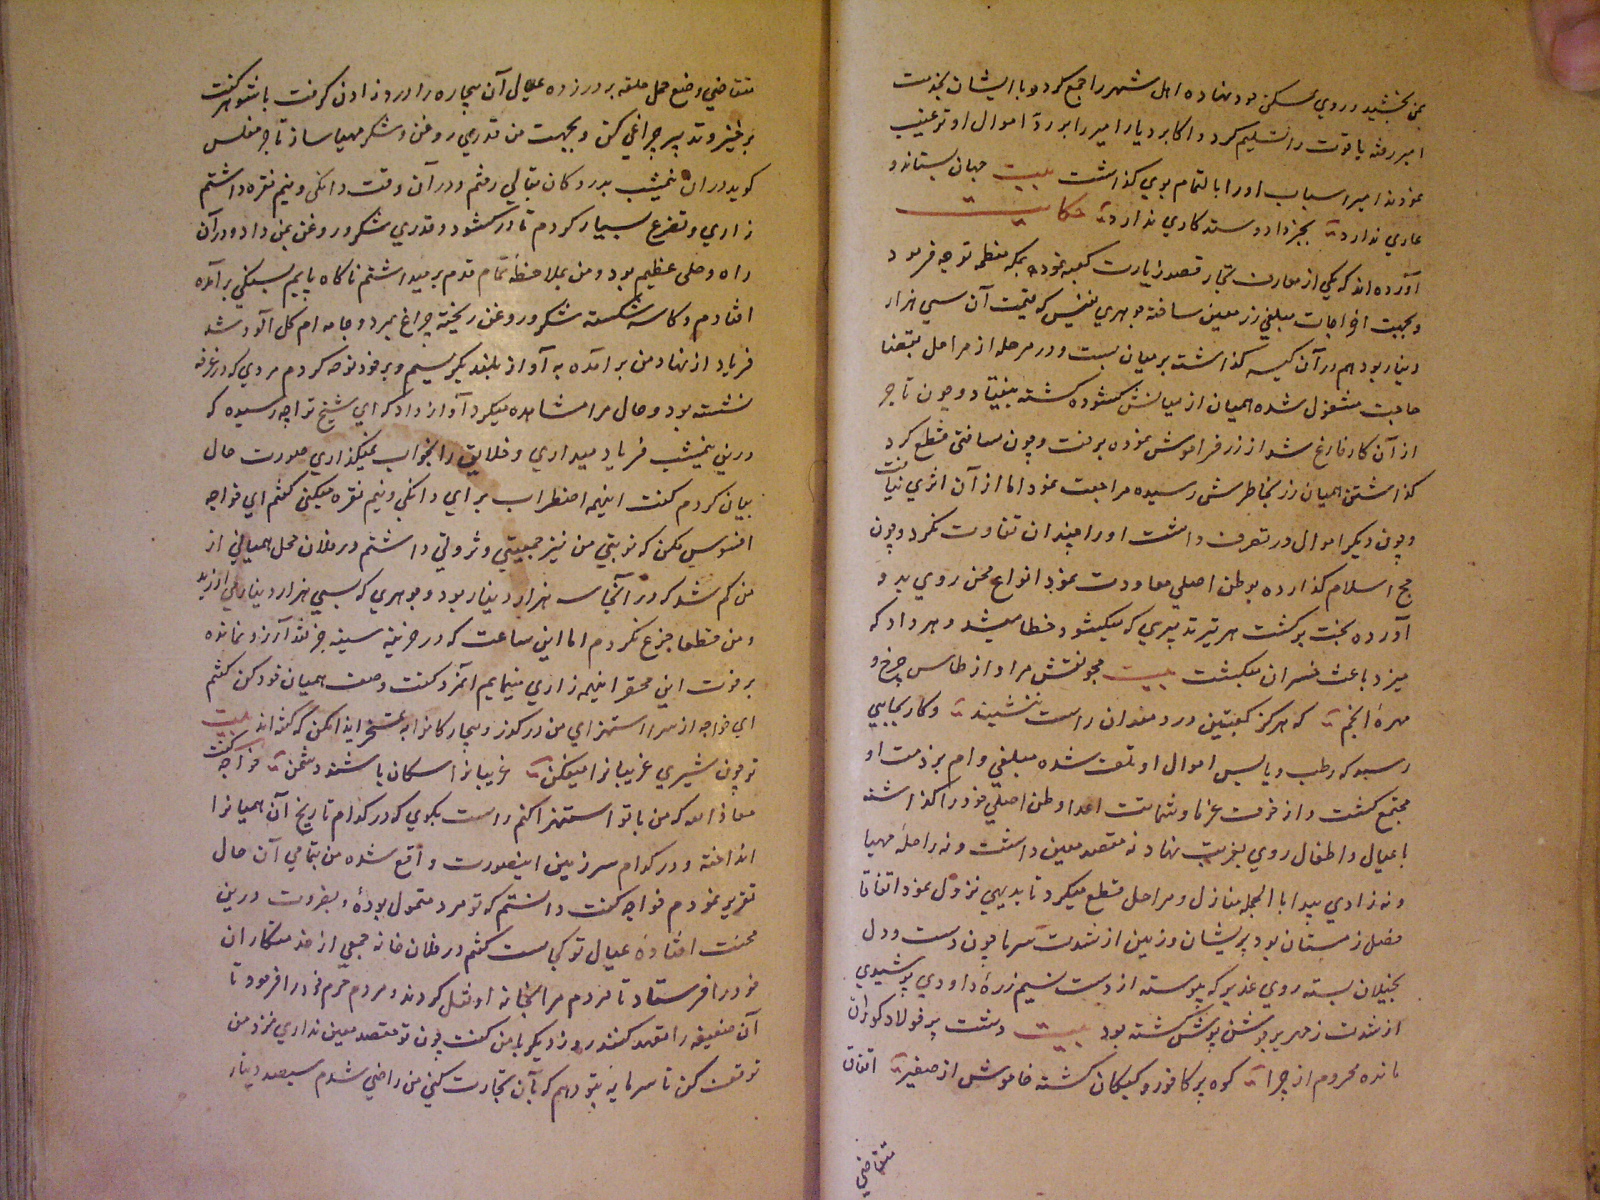 بمن بخشید در روی بمسکن خود نهاده اهل شهر را جمع کرد و با ایشان بخدمت
امیر رفته یاقوت را تسلیم کرد و اکابر دیار امیر را بر رد اموال او ترغیب
نمودند امیر اسباب او را بالتمام بوی گذاشت بیت جهان بستاند و
عاری ندارد بجز داد و ستد کاری ندارد حکایت
آورده‌اند که یکی از معارف تجار قصد زیارت کعبه نموده بمکه معظمه توجه فرمود
و بجهت اخراجات مبلغی زر معین ساخته جوهری نفیس که قیمت آن سی هزار
دینار بود هم در آن کیسه گذاشت بر میان بست و در مرحله از مراحل بمقتضا
حاجت مشغول شده همیان از میانش کشوده گشته بیفتاد و چون تاجر
از آن کار فارغ شد از زر فراموش نموده برفت و چون مسافتی قطع کرد
گذاشتن همیان زر بخاطرش رسیده مراجعت نمود اما از آن اثری نیافت
و چون دیگر اموال در تصرف داشت او را چندان تفاوت نکرد و چون
حج اسلام گذارده بوطن اصلی معاودت نمود انواع محن روی بدو
آورده بخت برگشت هر تیر تدبیری که میکشود خطا میشد و هر داد که
میزد باعث خسران میگشت بیت مجو نقش مراد از طاس چرخ و
مهرهٔ انجم که هرگز کعبتین دردمندان راست ننشیند و کار بجایی
رسید که رطب و یابس اموال او تلف شده مبلغی وام بر ذمت او
مجتمع گشت و از خوف غرما و شماتت اعدا وطن اصلی خود را گذاشته
با عیال و اطفال روی بغربت نهاد نه مقصد معین داشت و نه راحلهٔ مهیا
و نه زادی پیدا بالجمله منازل و مراحل قطع میکرد تا بدیهی نزول نمود اتفاقا
فصل زمستان بود پریشان و زمین از شدت سرما چون دست و دل
بخیلان بسته روی غدیر که پیوسته از دست نسیم زرهٔ داودی پوشیدی
از شدت زمهریر جوشن پوش گشته بود بیت دشت پر فولاد گوران
مانده محروم از چرا کوه پر کافور و کبکان گشته خاموش از صفیر اتفاق
متقاضی
متقاضی وضع حمل حلقه بر در زده عیال آن بیچاره را درد زادن گرفت با شوهر گفت
برخیز و تدبیر چراغی کن و بجهت من قدری روغن و شکر مهیا ساز تاجر مفلس
گوید در آن نیمشب بدر دکان بقالی رفتم و در آن وقت دانگی و نیم نقره داشتم
زاری و تضرع بسیار کردم تا در کشود و قدری شکر و روغن بمن داد و در آن
راه وحلی عظیم بود و من بملاحظه تمام قدم بر میداشتم ناگاه پایم بسنگی بر آمده
افتادم و کاسه شکسته شکر و روغن ریخته چراغ بمرد و جامه‌ام گل آلود شد
فریاد از نهاد من برآمده به آواز بلند بگریستم و بر خود نوحه کردم مردی که در غرفه
نشسته بود و حال مرا مشاهده میکرد آواز داد که ای شیخ ترا چه رسیده که
درین نیمشب فریاد میداری و خلایق را بخواب نمیگذاری صورت حال
بیان کردم گفت اینهمه اضطراب برای دانگی و نیم نقره میکنی گفتم ای خواجه
افسوس مکن که نوبتی من نیز جمعیتی و ثروتی داشتم در فلان محل همیانی از
من گم شد که در آنجا سه هزار دینار بود و جوهری که بسی هزار دینار می‌ارزید
و من قطعا جزع نکردم اما این ساعت که در خزینهٔ سینه جز نقد آرزو نمانده
بر فوت این محقر اینهمه زاری مینمایم آنمرد گفت وصف همیان خود کن گفتم
ای خواجه از سر استهزای من در گذر و بیچارگانرا به تمسخر ایذا مکن که گفته‌اند بیت
تو چون شیری غریبانرا میفکن غریبانرا سگان باشند دشمن خواجه گفت
معاذ الله که من با تو استهزا کنم راست بگوی که در کدام تاریخ آن همیانرا
انداخته و در کدام سرزمین اینصورت واقع شده من بتمامی آن حال
تقریر نمودم خواجه گفت دانستم که تو مرد متمول بودهٔ و بضرورت درین
محنت افتادهٔ عیال تو کجاست گفتم در فلان خانه جمعی از خدمتکاران
خود را فرستاد تا مردم مرا بخانه او نقل کردند و مردم حرم خود را فرمود تا
آن ضعیفه را تعهد کنند روز دیگر با من گفت چون تو مقصد معین نداری نزد من
توقف کن تا سرمایه بتو دهم که بآن تجارت کنی من راضی شدم سیصد دینار